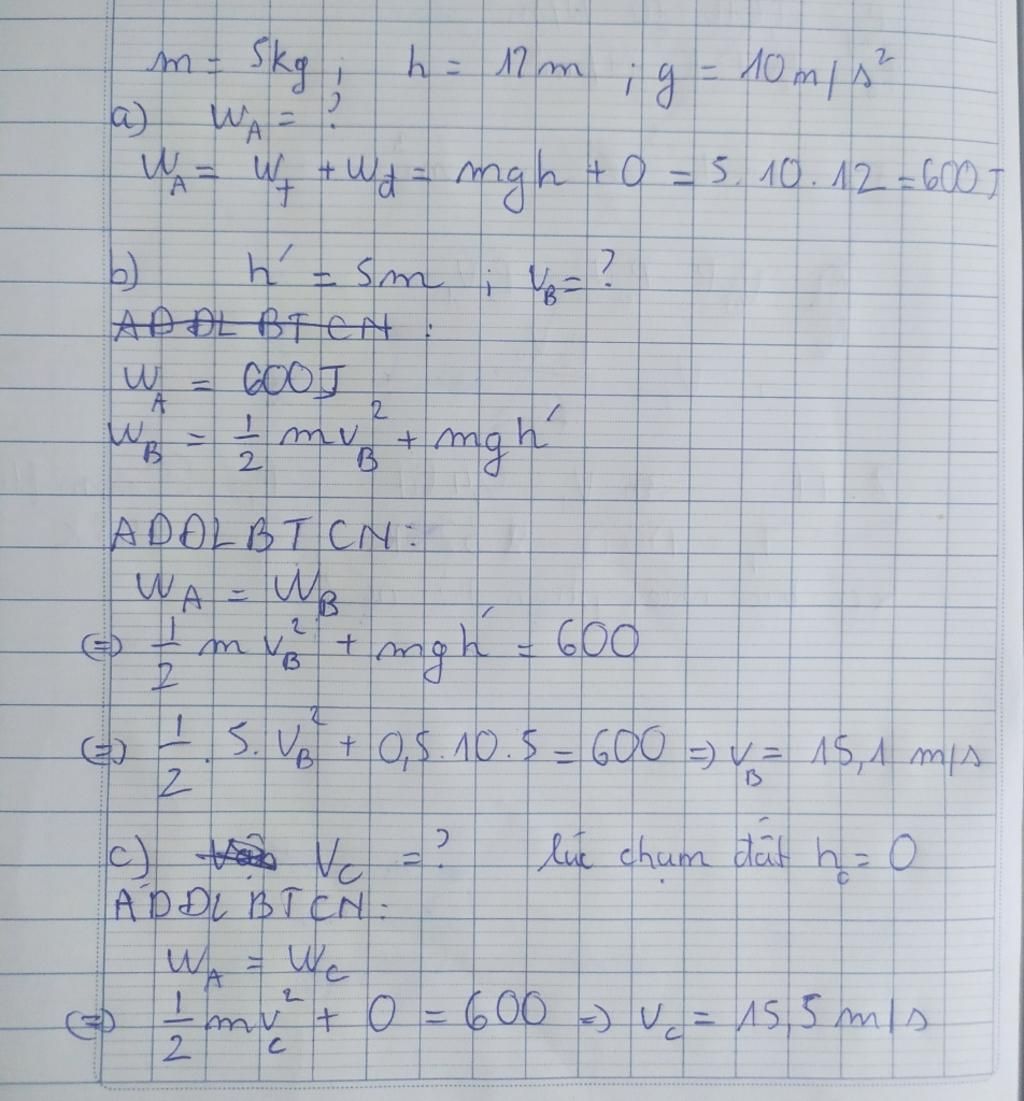 m = 5kg ; h = 12m ; g = 10m/s²
a) W_A = ?
W_A = W_t + W_d = mgh + 0 = 5.10.12 = 600J
b) h' = 5m ; v_B = ?
ADĐL BT CN :
W_A = 600J
W_B = 1/2 mv_B² + mgh'
ADĐLBTCN:
W_A = W_B
(=) 1/2 m v_B² + mgh' = 600
(=) 1/2 . 5. v_B² + 0,5.10.5 = 600 => v_B = 15,1 m/s
c) V_C = ? lúc chạm đất h_c = 0
ADĐL BTCN:
W_A = W_C
(=) 1/2 mv_c² + 0 = 600 => v_c = 15,5 m/s